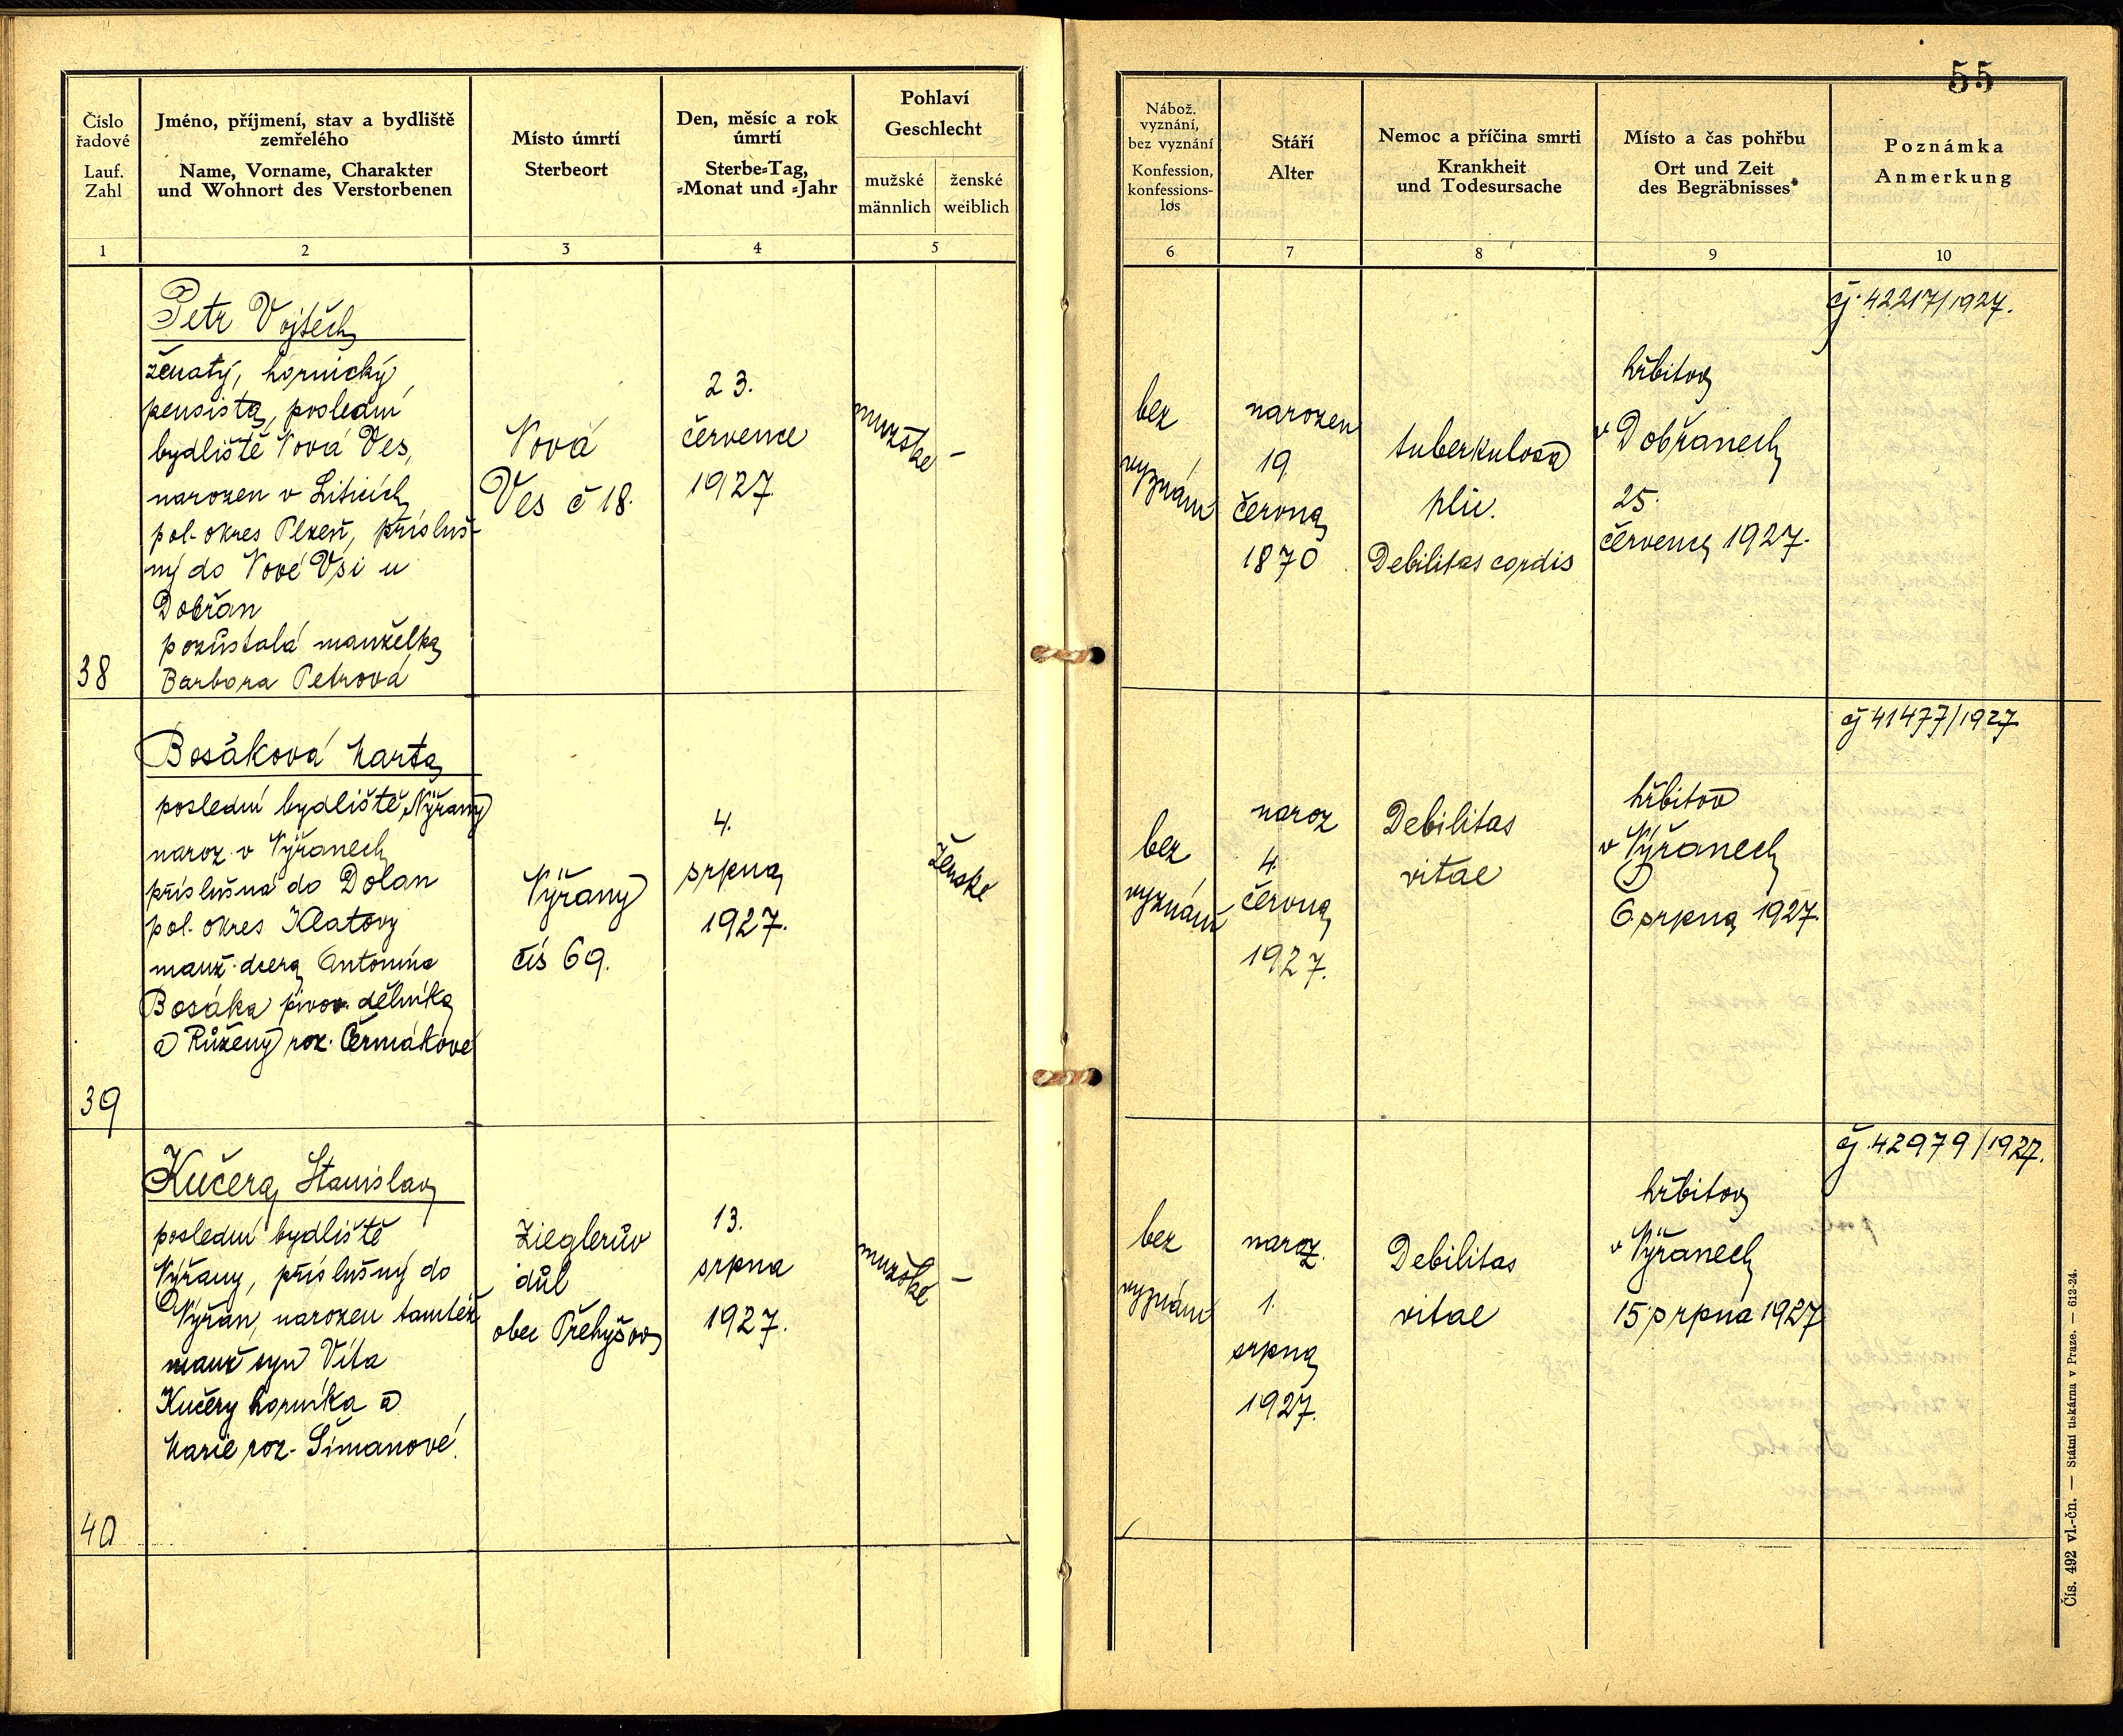 55
Číslo
řadové
Lauf.
Zahl
Jméno, příjmení, stav a bydliště
zemřelého
Name, Vorname, Charakter
und Wohnort des Verstorbenen
Místo úmrtí
Sterbeort
Den, měsíc a rok
úmrtí
Sterbe-Tag,
-Monat und -Jahr
Pohlaví
Geschlecht
mužské
männlich
ženské
weiblich
Nábož.
vyznání,
bez vyznání
Konfession,
konfessions-
los
Stáří
Alter
Nemoc a příčina smrti
Krankheit
und Todesursache
Místo a čas pohřbu
Ort und Zeit
des Begräbnisses
Poznámka
Anmerkung
1 2 3 4 5 6 7 8 9 10
38
Petr Vojtěch
ženatý, hornický
pensista, poslední
bydliště Nová Ves,
narozen v Liticích
pol. okres Plzeň, přísluš-
ný do Nové Vsi u
Dobřan
pozůstalá manželka
Barbora Petrová
Nová
Ves č 18.
23.
července
1927
mužské
–
bez
vyznání
narozen
19
června
1870
tuberkulosa
plic.
Debilitas cordis
hřbitov
v Dobřanech
25.
července 1927.
čj. 42217/1927.
39
Bosáková Marta
poslední bydliště Nýřany
naroz. v Nýřanech
příslušná do Dolan
pol. okres Klatovy
manž. dcera Antonína
Bosáka pivov. dělníka
a Růženy roz. Čermákové
Nýřany
čís 69.
4.
srpna
1927.
ženské
bez
vyznání
naroz
4.
června
1927.
Debilitas
vitae
hřbitov
v Nýřanech
6. srpna 1927.
čj 41477/1927
40
Kučera Stanislav
poslední bydliště
Nýřany, příslušný do
Nýřan, narozen tamtéž
manž syn Víta
Kučery horníka a
Marie roz. Šimanové.
Zieglerův
důl
obec Přehýšov
13.
srpna
1927.
mužské
–
bez
vyznání
naroz.
1.
srpna
1927.
Debilitas
vitae
hřbitov
v Nýřanech
15 srpna 1927
čj. 42979/1927.
Čís. 492 vl.-čn. — Státní tiskárna v Praze. — 612-24.